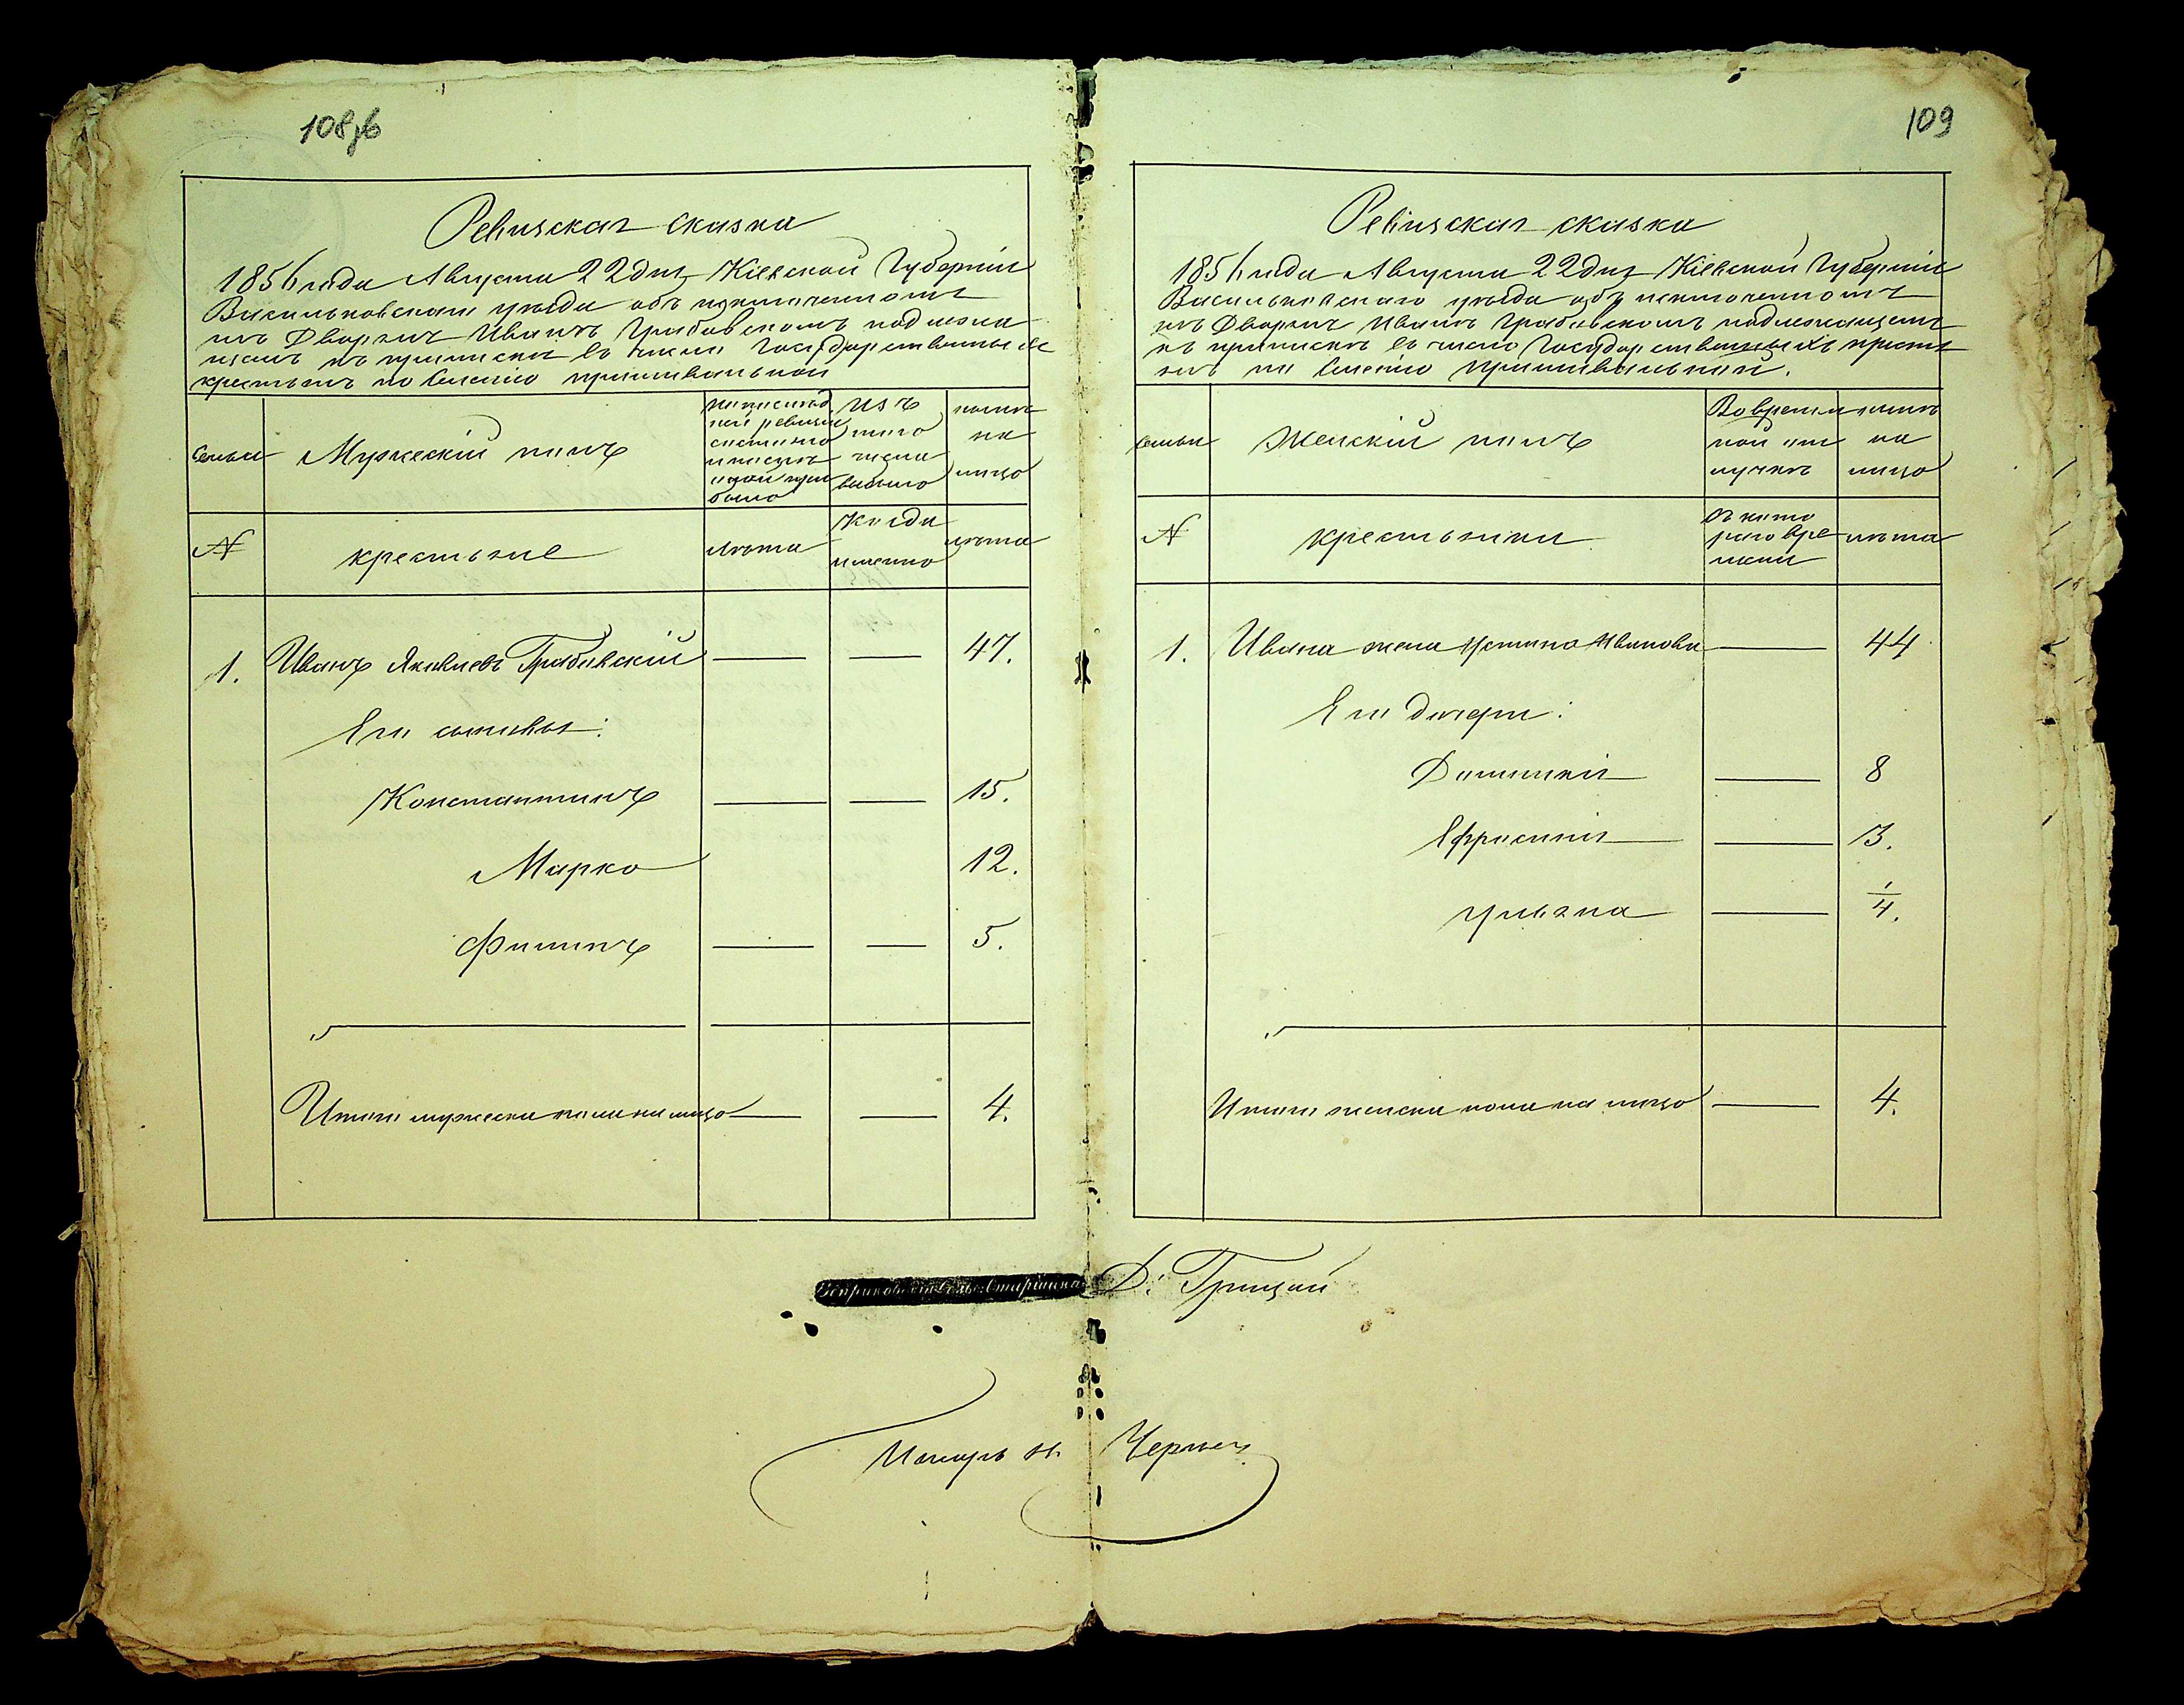 108об
Ревизская сказка
1856 года Августа 22 дня Кіевской Губерніи
Васильковскаго уѣзда объ изключенномъ
изъ Дворянъ Иванѣ Грабовскомъ подлежа
щемъ къ припискѣ въ число Государственныхъ
крестьянъ по Селенію
семьи
Мужескій полъ
по послѣд
ней ревизіи
состояло
и послѣ
было
изъ
того
числа
выбыло
нынѣ
на
лицо
№
крестьяне
лѣта
когда
именно
лѣта
1. Иванъ Яковлевъ Грабовскій — — 47.
Его сыновья:
Константинъ — — 15.
Марко 12.
Филипъ — — 5.
Итого мужеска пола на лицо — — 4.
109
Ревизская сказка
1856 года Августа 22 дня Кіевской Губерніи
Васильковскаго уѣзда объ исключенномъ
изъ Дворянъ Иванѣ Грабовскомъ подлежащемъ
къ припискѣ въ число Государственныхъ кресть
янъ по Селенію
семьи
Женскій полъ
Во времен
ной от
лучкѣ
нынѣ
на
лицо
№
крестьянки
съ кото
раго вре
мени
лѣта
1. Ивана жена Устина Иванова — 44
Его дочери:
Домникія — 8
Ефросинія — 3.
Ульяна — 1/4.
Итого женска пола на лицо — 4.
Д. Грицай
Писарь Н. Чернец